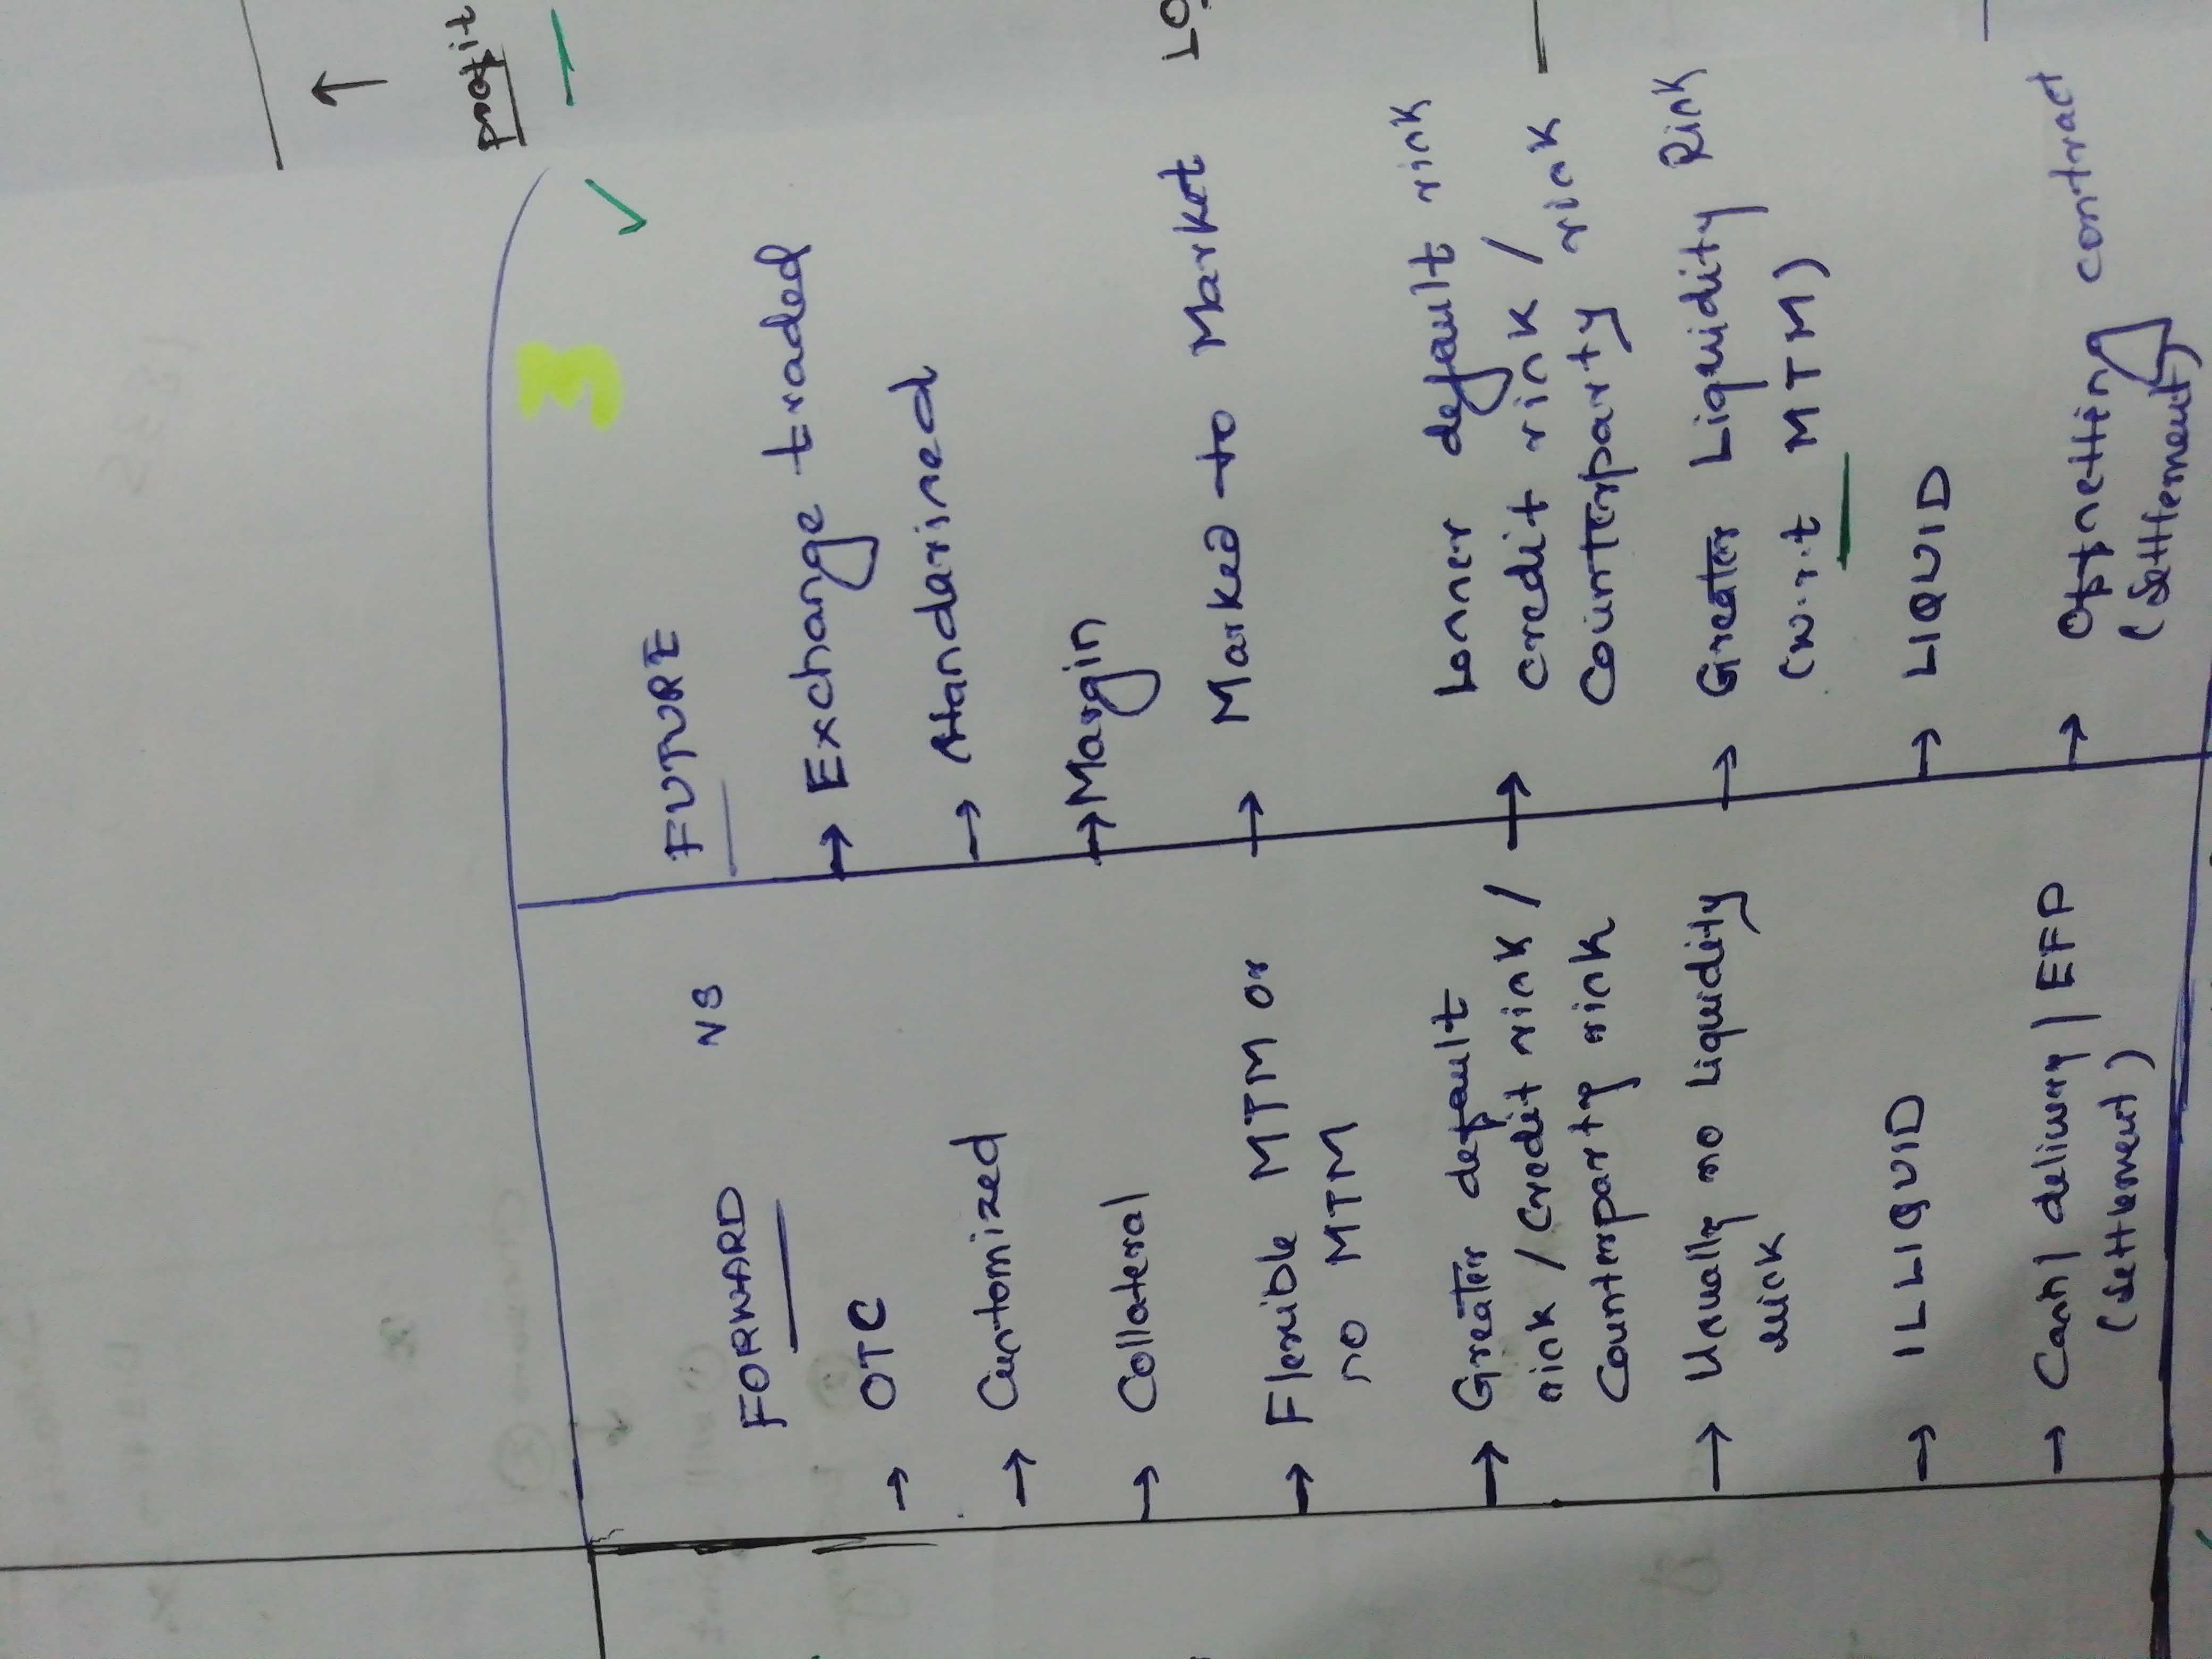 profit
FORWARD VS FUTURE
→ OTC
→ Exchange traded
→ Customized
→ Standarised
→ Collateral
→ Margin
→ Flexible MTM or
no MTM
→ Marked to Market
→ Greater default
risk / Credit risk /
Counterparty risk
→ Lower default risk
credit risk /
Counterparty risk
→ Usually no liquidity
risk
→ Greater Liquidity Risk
(w.r.t MTM)
→ ILLIQUID
→ LIQUID
→ Cash / delivery / EFP
(settlement)
→ Offsetting contract
(settlement)